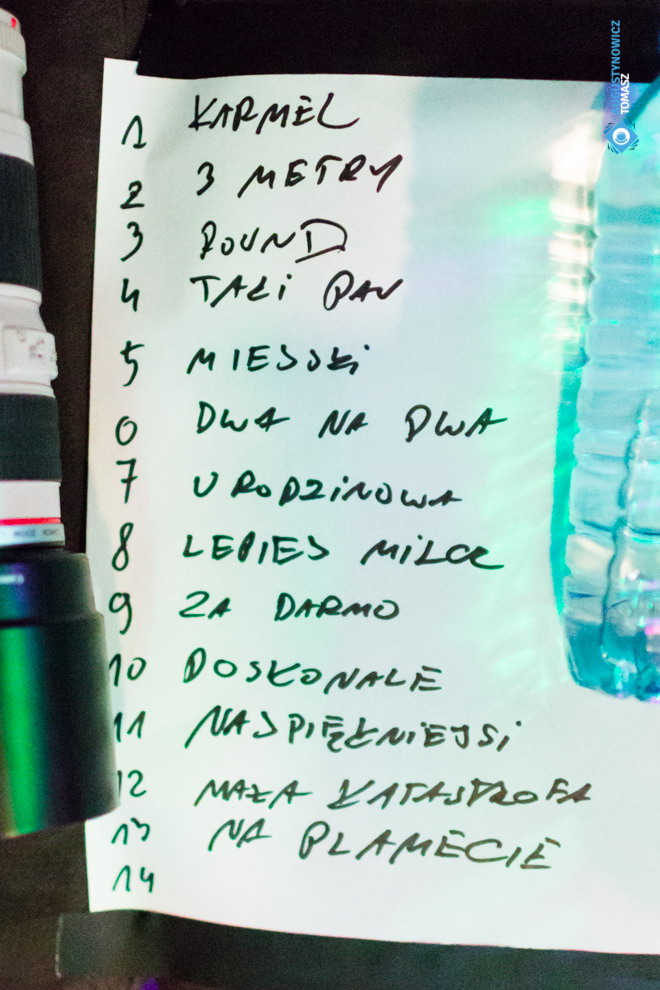 AUGUSTYNOWICZ
TOMASZ
1 KARMEL
2 3 METRY
3 ROUND
4 TAKi PAN
5 MIEJSKi
6 DWA NA DWA
7 URODZiNOWA
8 LEPIEJ MiLCZ
9 ZA DARMO
10 DOSKONALE
11 NAJPIĘKNiEJSi
12 MAŁA KATASTROFA
13 NA PLANECIE
14